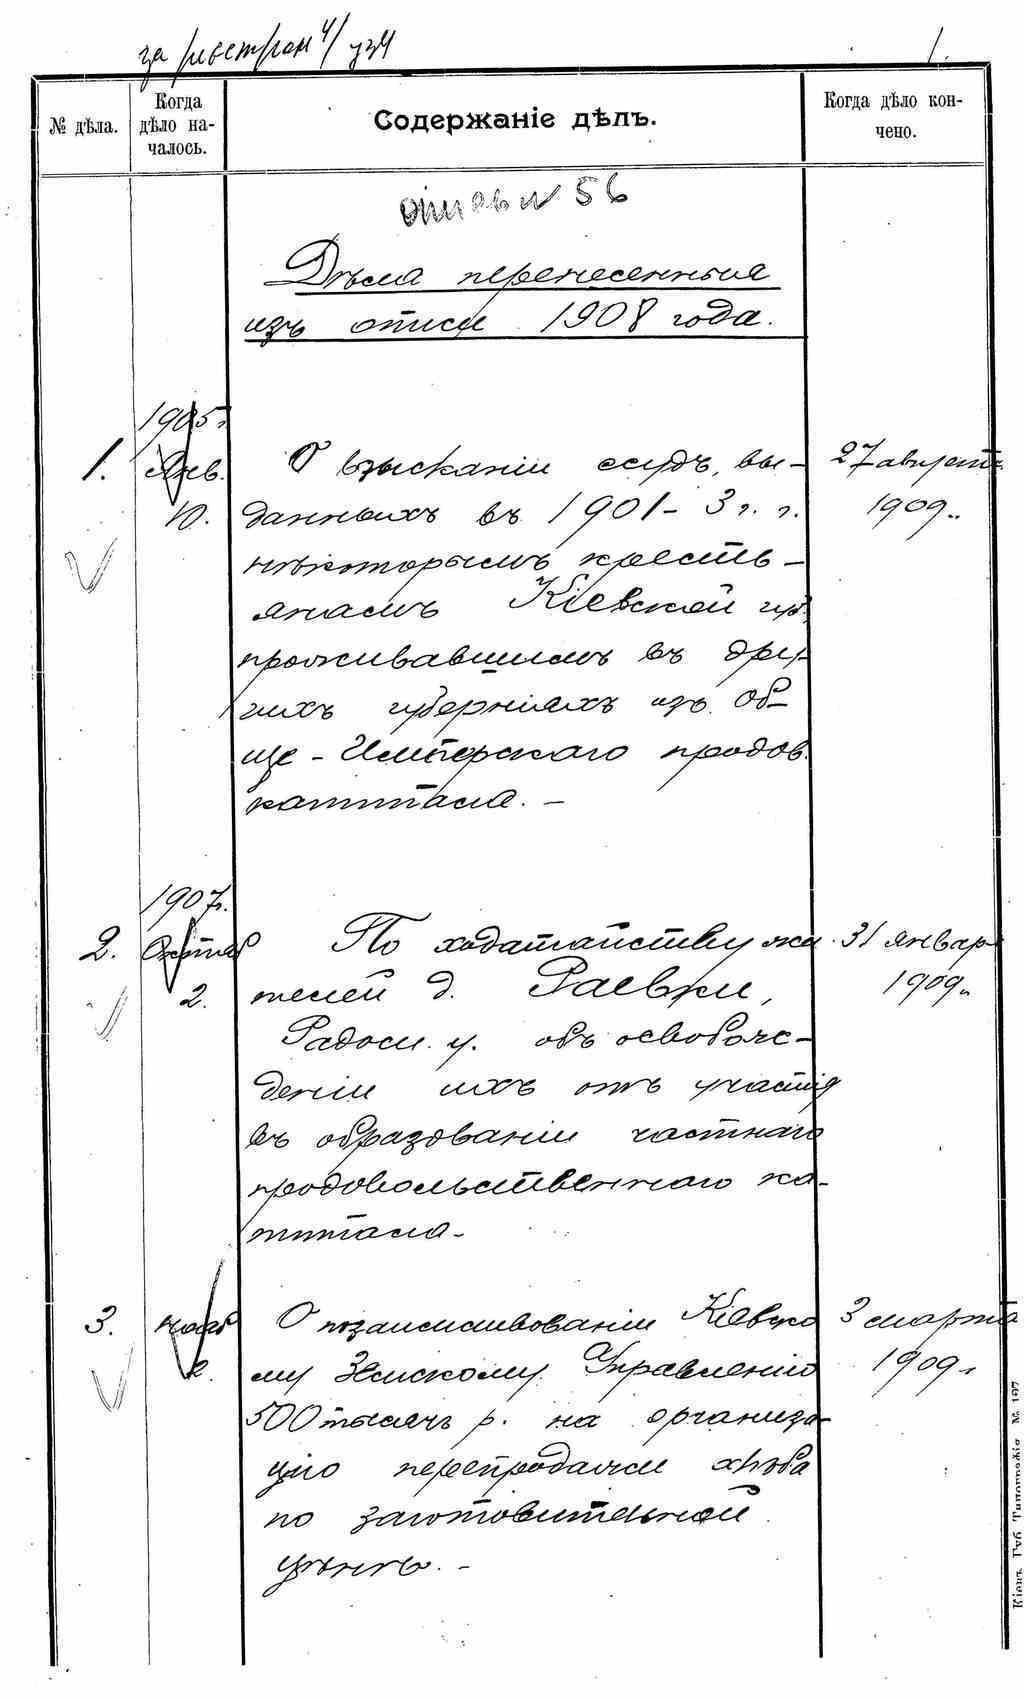 за реестром
1.
№ дѣла.
Когда
дѣло на-
чалось.
Содержаніе дѣлъ.
Когда дѣло кон-
чено.
56
Дѣла перенесенныя
изъ описи 1908 года.
1905 г.
1. Янв. О взысканіи ссудъ, вы- 27 августа
10. данныхъ въ 1901-3 г. г. 1909 г.
нѣкоторымъ кресть-
янамъ Кіевской губ.
проживавшимъ въ дру-
гихъ губерніяхъ изъ об-
ще-Имперскаго продов.
капитала. -
1907 г.
2. Октяб По ходатайству жи- 31 январ
2. телей д. Раевки, 1909 г.
Радом. у. объ освобож-
деніи ихъ отъ участія
въ образованіи частнаго
продовольственнаго ка-
питала -
3. нояб О позаимствованіи Кіевско 3 марта
2. му Земскому Управленію 1909 г.
500 тысячъ р. на организа-
цію перепродажи хлѣба
по заготовительной
цѣнѣ. -
Кіевъ, Губ. Типографія № 197